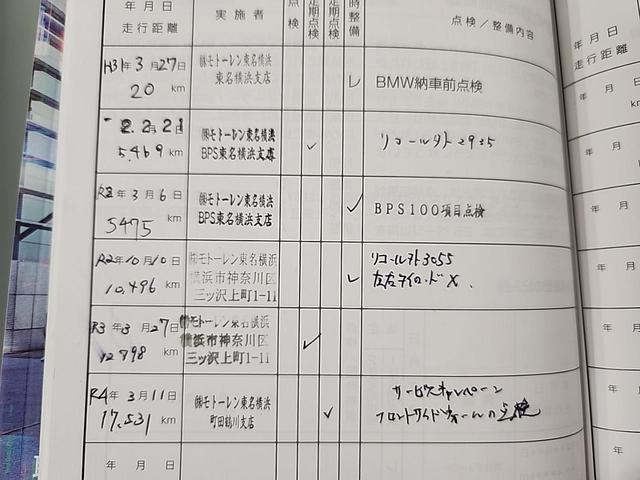 年 月 日
走行距離
実施者
点検
定期点検
定期点検
時整備
点検／整備内容
年 月 日
走行距離
H31年 3月 27日
20 km
㈱モトーレン東名横浜
東名横浜支店
レ
BMW納車前点検
2. 2. 21
5,469 km
㈱モトーレン東名横浜
BPS東名横浜支店
✓
リコール外 2935
R2年 3月 6日
5475 km
㈱モトーレン東名横浜
BPS東名横浜支店
✓
BPS100項目点検
R2年10月10日
10,496 km
㈱モトーレン東名横浜
横浜市神奈川区
三ッ沢上町1-11
✓
リコール外3055
左右タイロッド X.
R3年 3月 27日
12798 km
㈱モトーレン東名横浜
横浜市神奈川区
三ッ沢上町1-11
✓
R4年 3月 11日
17,531 km
㈱モトーレン東名横浜
町田鶴川支店
✓
サービスキャンペーン
フロントサイド の点検
年 月 日
年 月 日
年 月 日
年 月 日
年 月 日
年 月 日